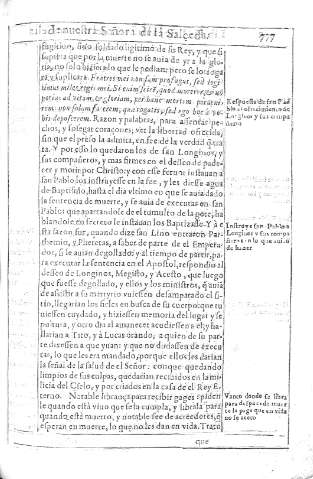 de nuestra Señora de la Salceda
777
fugicion, sino soldado ligitimo de su Rey, y que si
supiera que por la muerte no se auia de yr a la glo-
ria, no solo hiziera lo que le pedian; pero se lo roga-
ra, y suplicara. Fratres mei non sum profugus, sed legi-
timus miles regis mei. Et cum scirem, quod
potius ad vitam, & gloriam, per hanc mortem
rem non solum facerem, quae rogatis, sed ego hoc a vo-
bis deposcerem. Razon y palabras, para assentar pe-
chos, y sossegar coraçones; ver la libertad ofrecida,
sin que el preso la admita, en fee de la verdad
ta. Y por esso lo quedaron los de san Longinos, y
sus compañeros, y mas firmes en el desseo de pade-
cer, y morir por Christo, y con esse feruor instauan a
san Pablo los instruyesse en la fee, y les diesse agua
de Baptismo, hasta el dia vltimo en que se auia dado
la sentencia de muerte, y se auia de executar en san
Pablo: que apartandose de el tumulto de la gente, ha
blandole en secreto le instauan los Baptizasse. Y a e
sta sazon fue, quando dize san Lino entraron Par-
themio, y Pheretas, a saber de parte de el Empera-
dor, si le auian degollado; y al tiempo de partir, pa-
ra executar la sentencia en el Apostol, respondio al
desseo de Longinos, Megisto, y Acesto, que luego
que fuesse degollado, y ellos y los ministros, q̃ auia
de assistir a su martyrio vuiessen desamparado el si-
tio, llegarian los fieles en busca de su cuerpo: que tu
uiessen cuydado, y hiziessen memoria del lugar y se
pultura, y otro dia al amanecer acudiessen a el; y ha
llarian a Tito, y à Lucas orando, a quien de su par-
te diessen a que yuan: y que no dudassen de execu
tar, lo que les era mandado, porque ellos les darian
la señal de la salud de el Señor: con que quedando
limpios de sus culpas, quedarian recibidos en la mi
licia del Cielo, y por criados en la casa de el Rey E-
terno. Notable librança para recibir gages: piden
le quando està viuo que se la cumpla, y librala para
quando està muerto, y notable fee de acreedores, q̃
esperan en muerte, lo que no les dan en vida. Traço
que
Respuesta de san Pa
blo
Longinos y sus compa
ñeros
Instruye san Pablo a
Longinos y sus compa
ñeros en lo que auian
de hazer